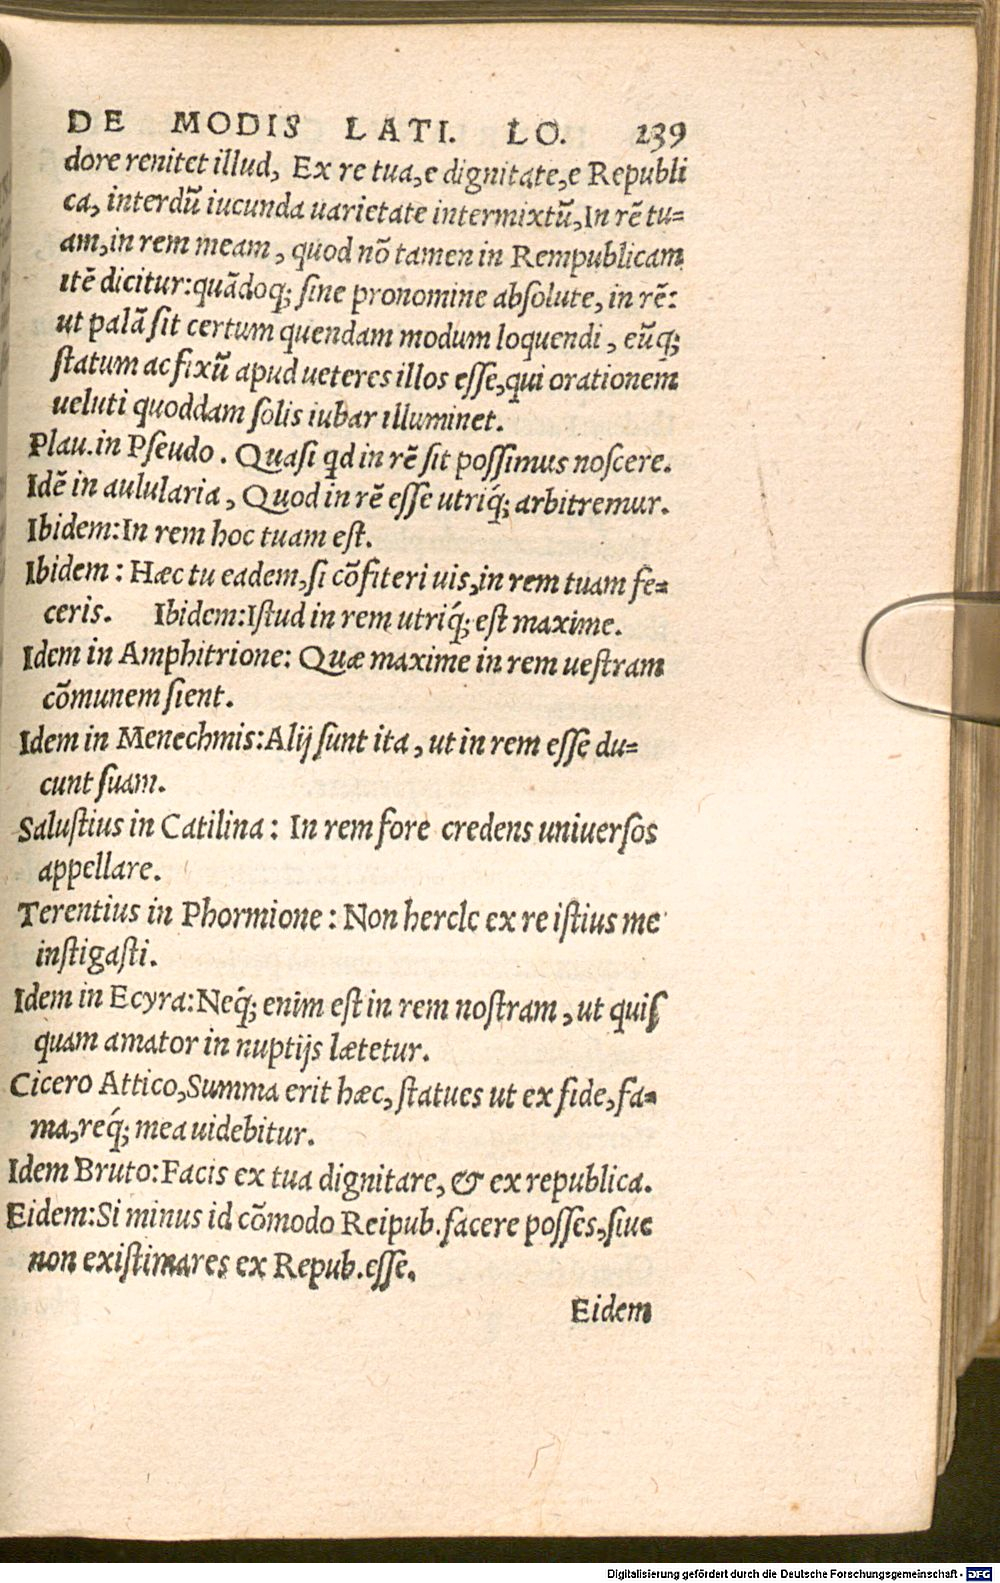 DE MODIS LATI. LO. 239
dore renitet illud, Ex re tua, e dignitate, e Republi
ca, interdũ iucunda uarietate intermixtũ, In rẽ tu=
am, in rem meam, quod nõ tamen in Rempublicam
itẽ dicitur: quãdoq; sine pronomine absolute, in rẽ:
ut palã sit certum quendam modum loquendi, eũq;
statum ac fixũ apud ueteres illos esse, qui orationem
ueluti quoddam solis iubar illuminet.
Plau. in Pseudo. Quasi qd in rẽ sit possimus noscere.
Idẽ in aulularia, Quod in rẽ esse utriq́; arbitremur.
Ibidem: In rem hoc tuam est.
Ibidem: Hæc tu eadem, si cõfiteri uis, in rem tuam fe=
ceris. Ibidem: Istud in rem utriq́; est maxime.
Idem in Amphitrione: Quæ maxime in rem uestram
cõmunem sient.
Idem in Menechmis: Alij sunt ita, ut in rem esse du=
cunt suam.
Salustius in Catilina: In rem fore credens uniuersos
appellare.
Terentius in Phormione: Non hercle ex re istius me
instigasti.
Idem in Ecyra: Neq́; enim est in rem nostram, ut quis
quam amator in nuptijs lætetur.
Cicero Attico, Summa erit hæc, statues ut ex fide, fa=
ma, req́; mea uidebitur.
Idem Bruto: Facis ex tua dignitare, & ex republica.
Eidem: Si minus id cõmodo Reipub. facere posses, siue
non existimares ex Repub. esse.
Eidem
Digitalisierung gefördert durch die Deutsche Forschungsgemeinschaft - DFG